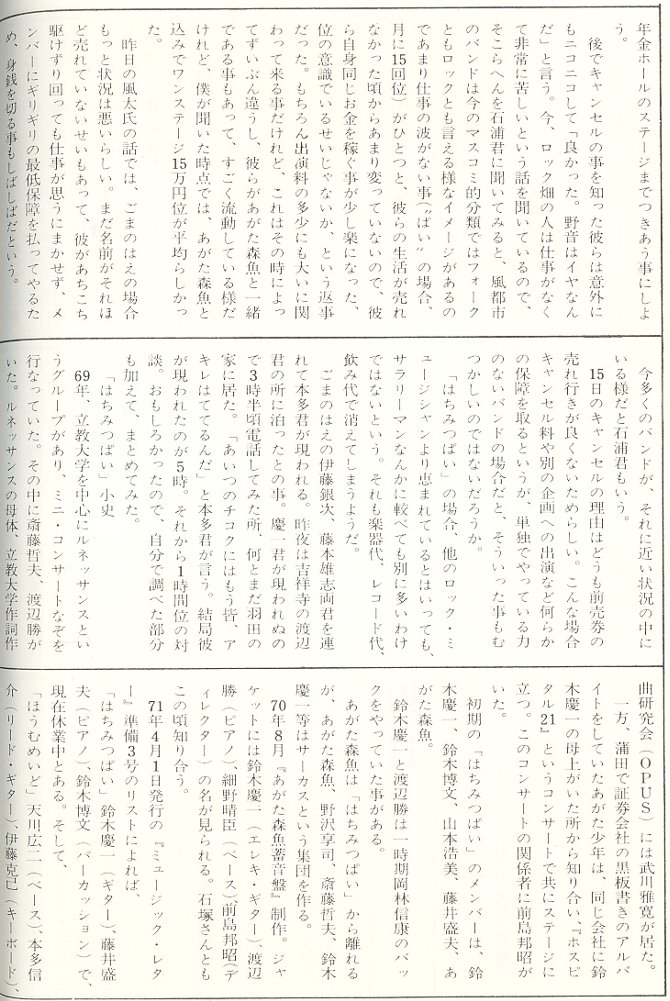 年金ホールのステージまでつきあう事にしよ
う。
　後でキャンセルの事を知った彼らは意外に
もニコニコして「良かった。野音はイヤなん
だ」と言う。今、ロック畑の人は仕事がなく
て非常に苦しいという話を聞いているので、
そこらへんを石浦君に聞いてみると、風都市
のバンドは今のマスコミ的分類ではフォーク
ともロックとも言える様なイメージがあるの
であまり仕事の波がない事（“ぱい”の場合、
月に15回位）がひとつと、彼らの生活が売れ
なかった頃からあまり変っていないので、彼
ら自身同じお金を稼ぐ事が少し楽になった、
位の意識でいるせいじゃないか、という返事
だった。もちろん出演料の多少にも大いに関
わって来る事だけれど、これはその時によっ
てずいぶん違うし、彼らがあがた森魚と一緒
である事もあって、すごく流動している様だ
けれど、僕が聞いた時点では、あがた森魚と
込みでワンステージ15万円位が平均らしかっ
た。
　昨日の風太氏の話では、ごまのはえの場合
もっと状況は悪いらしい。まだ名前がそれほ
ど売れていないせいもあって、彼があちこち
駆けずり回っても仕事が思うにまかせず、メ
ンバーにギリギリの最低保障を払ってやるた
め、身銭を切る事もしばしばだという。
　今多くのバンドが、それに近い状況の中に
いる様だと石浦君もいう。
　15日のキャンセルの理由はどうも前売券の
売れ行きが良くないためらしい。こんな場合
キャンセル料や別の企画への出演など何らか
の保障を取るというが、単独でやっている力
のないバンドの場合だと、そういった事もむ
つかしいのではないだろうか。
　「はちみつぱい」の場合、他のロック・ミ
ュージシャンより恵まれているとはいっても、
サラリーマンなんかに較べても別に多いわけ
ではないという。それも楽器代、レコード代、
飲み代で消えてしまうようだ。
　ごまのはえの伊藤銀次、藤本雄志両君を連
れて本多君が現われる。昨夜は吉祥寺の渡辺
君の所に泊ったとの事。慶一君が現われぬの
で3時半頃電話してみた所、何とまだ羽田の
家に居た。「あいつのチコクにはもう皆、ア
キレはててるんだ」と本多君が言う。結局彼
が現われたのが5時。それから1時間位の対
談。おもしろかったので、自分で調べた部分
も加えて、まとめてみた。
　「はちみつぱい」小史
　69年、立教大学を中心にルネッサンスとい
うグループがあり、ミニ・コンサートなぞを
行なっていた。その中に斎藤哲夫、渡辺勝が
いた。ルネッサンスの母体、立教大学作詞作
曲研究会（OPUS）には武川雅寛が居た。
　一方、蒲田で証券会社の黒板書きのアルバ
イトをしていたあがた少年は、同じ会社に鈴
木慶一の母上がいた所から知り合い、『ホスピ
タル21』というコンサートで共にステージに
立つ。このコンサートの関係者に前島邦昭が
いた。
　初期の「はちみつぱい」のメンバーは、鈴
木慶一、鈴木博文、山本浩美、藤井盛夫、あ
がた森魚。
　鈴木慶一と渡辺勝は一時期岡林信康のバッ
クをやっていた事がある。
　あがた森魚は「はちみつぱい」から離れる
が、あがた森魚、野沢享司、斎藤哲夫、鈴木
慶一等はサーカスという集団を作る。
　70年8月『あがた森魚蓄音盤』制作。ジャ
ケットには鈴木慶一（エレキ・ギター）、渡辺
勝（ピアノ）、細野晴臣（ベース）、前島邦昭（デ
ィレクター）の名が見られる。石塚さんとも
この頃知り合う。
　71年4月1日発行の『ミュージック・レタ
ー』準備3号のリストによれば、
「はちみつぱい」鈴木慶一（ギター）、藤井盛
夫（ピアノ）、鈴木博文（パーカッション）で、
現在休業中とある。そして、
「ほうむめいど」天川広二（ベース）、本多信
介（リード・ギター）、伊藤克己（キーボード）、